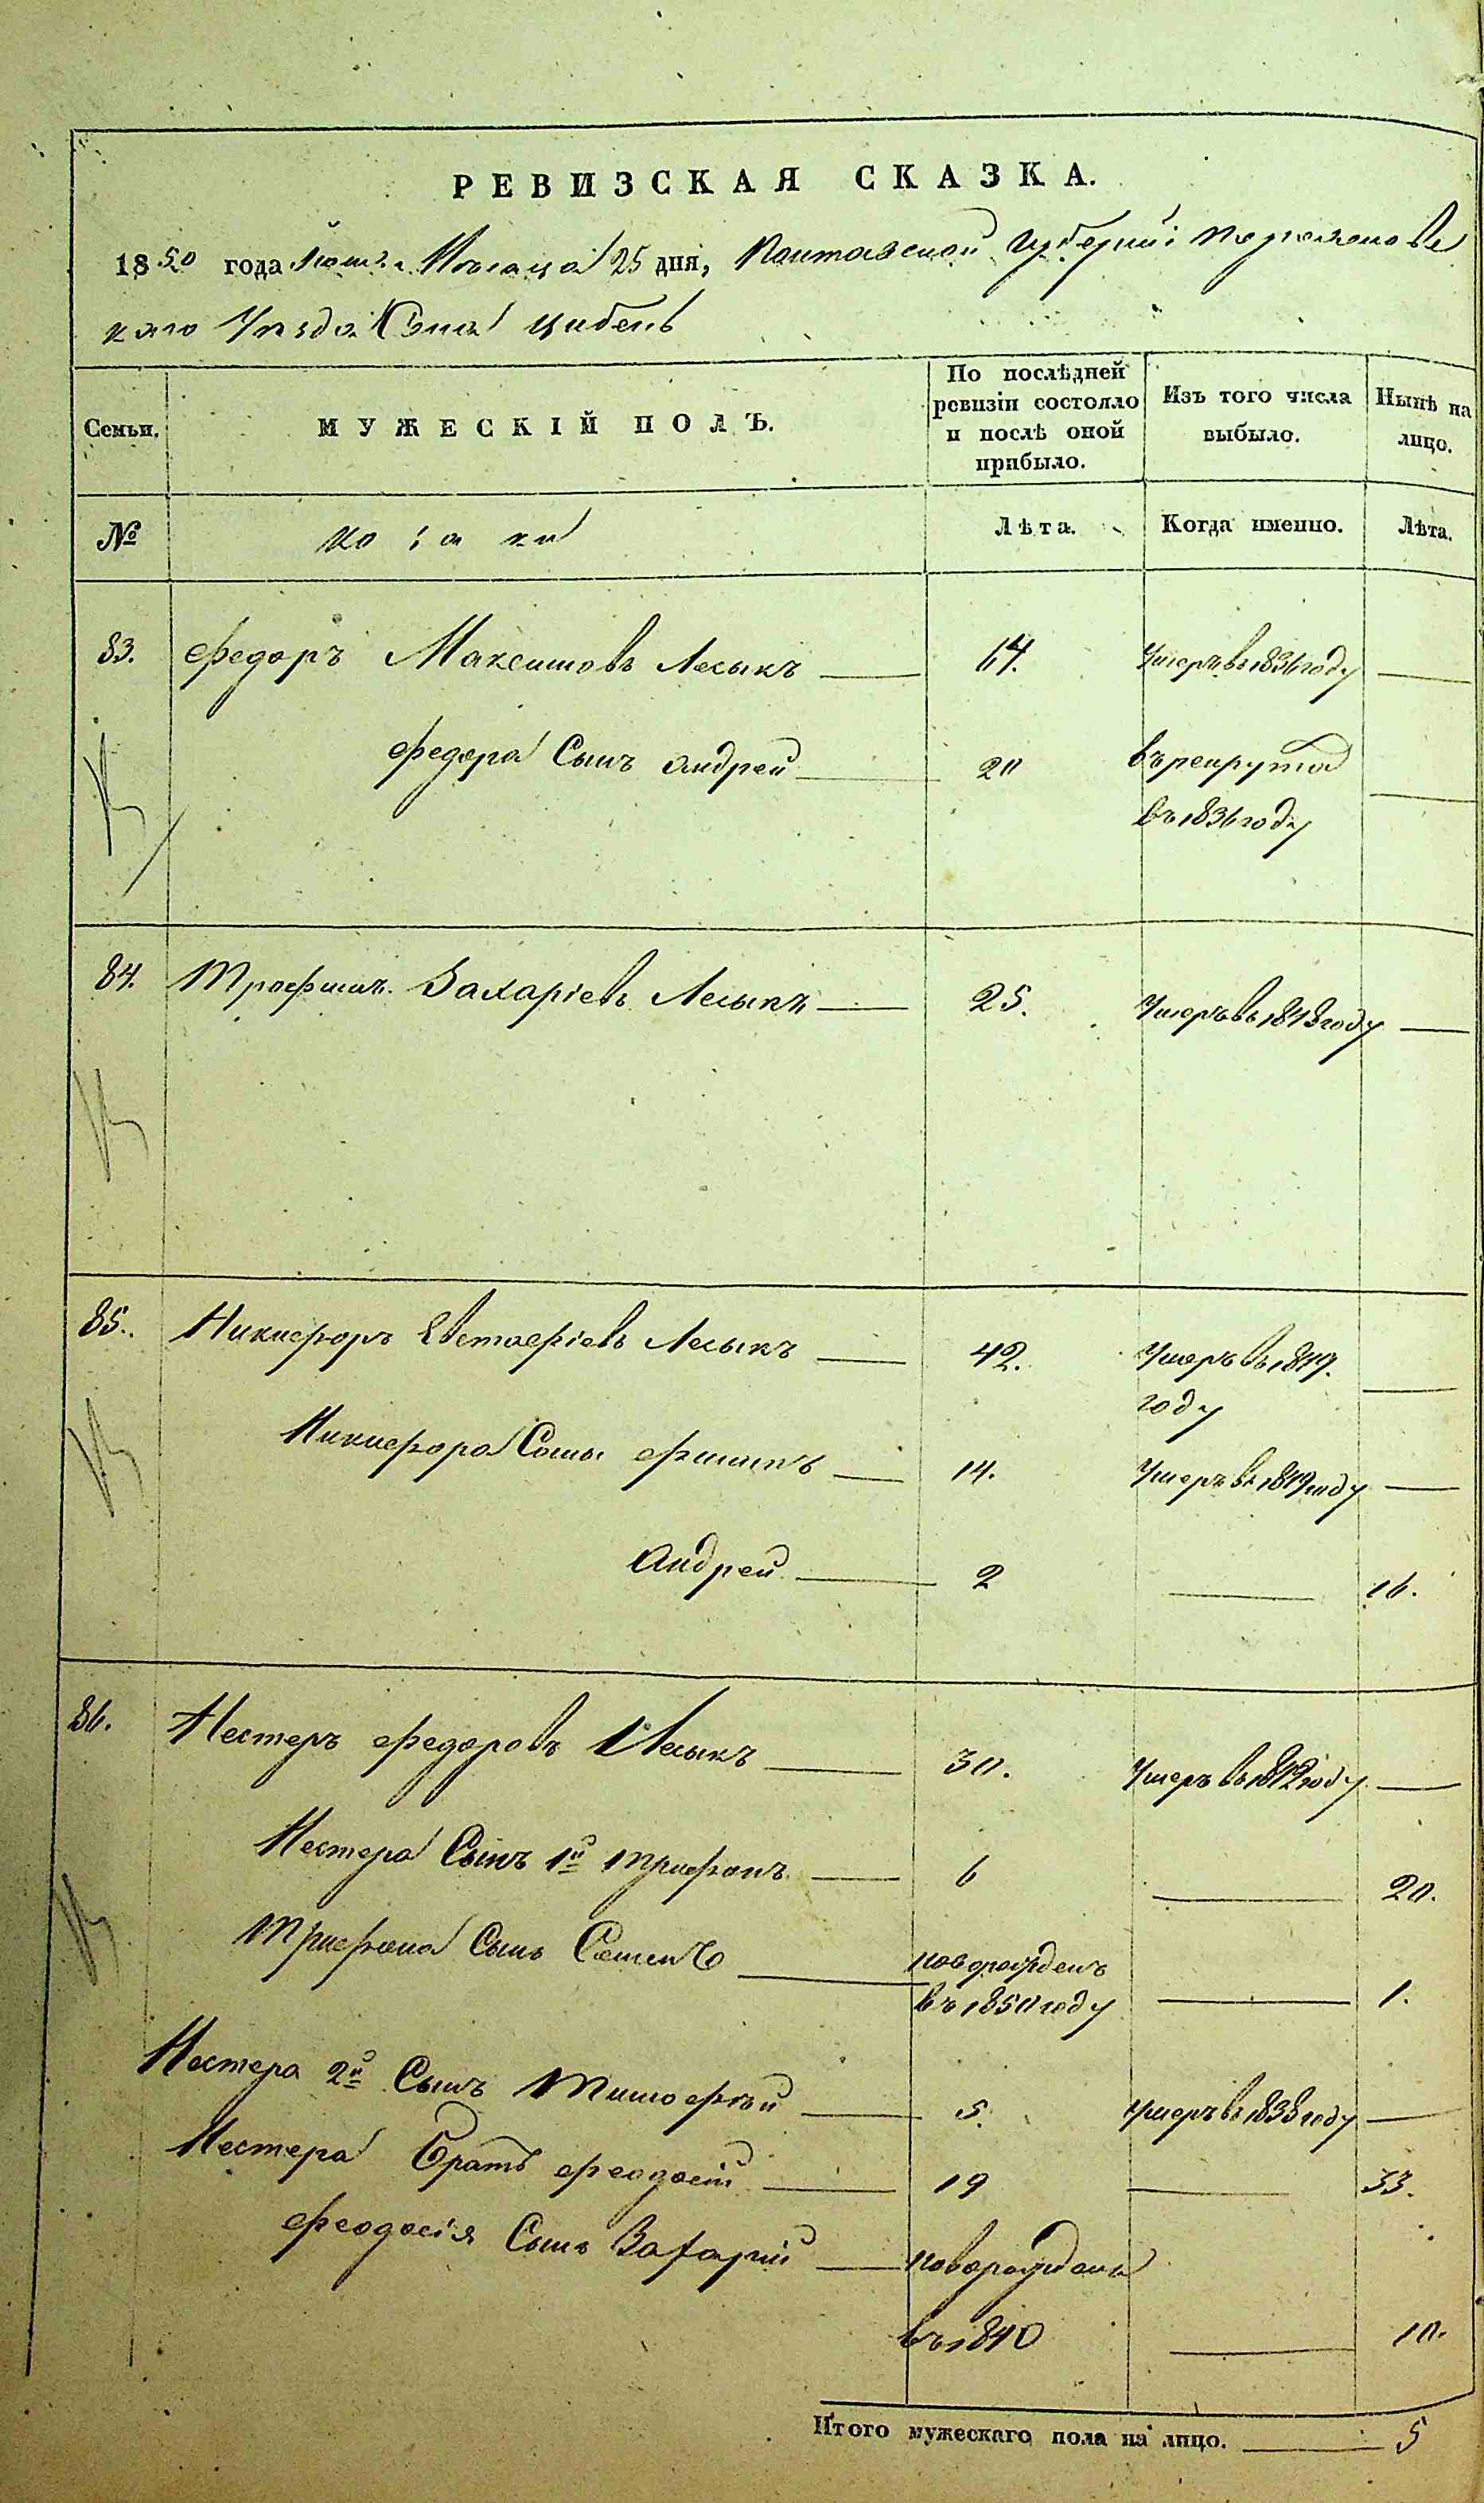 РЕВИЗСКАЯ СКАЗКА.
1850 года Месяца 25 дня, Полтавской Губерніи
каго Уезда Села Цибель
Семьи. МУЖЕСКІЙ ПОЛЪ. По послѣдней ревизіи состояло и послѣ оной прибыло. Изъ того числа выбыло. Нынѣ на лицо.
№ козаки Лѣта. Когда именно. Лѣта.
83. Федоръ Максимовъ Лесыкъ 64. Умеръ въ 1836 году
Федора Сынъ Андрей 20 въ рекрута
въ 1836 году
84. Трофимъ Захаріевъ Лесыкъ 25. Умеръ въ 1848 году
85. Никифоръ Евстафіевъ Лесыкъ 42. Умеръ въ 1849.
году
Никифора Сыны Филипъ 14. Умеръ въ 1849 году
Андрей 2 16.
86. Нестеръ Федоровъ Лесыкъ 30. Умеръ въ 1842 году
Нестера Сынъ 1й Трифонъ 6 20.
Трифона Сынъ Семенъ новорожденъ 1.
въ 1850 году
Нестера 2й Сынъ Тимофѣй 5. Умеръ въ 1838 году
Нестера Братъ Феодосій 19 33.
Феодосія Сынъ Захарій новорожденъ
въ 1840 10.
Итого мужескаго пола на лицо. 5